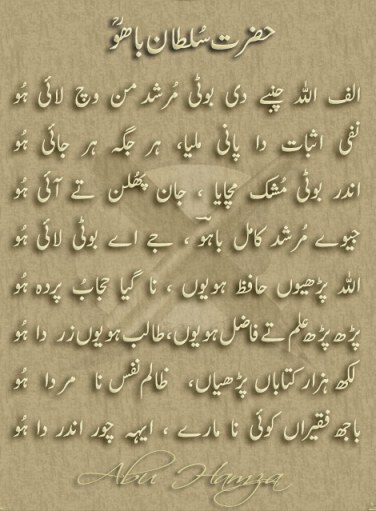 حضرت سُلطان باھُوؒ
الف اللہ چنبے دی بوٹی مُرشد من وچ لائی ہُو
نفی اثبات دا پانی ملیا، ہر جگہ ہر جائی ہُو
اندر بوٹی مُشک مچایا ، جان پھُلن تے آئی ہُو
جیوے مُرشد کامل باہوؒ ، جے اے بوٹی لائی ہُو
اللہ پڑھیوں حافظ ہویوں ، نا گیا حجابُ پردہ ہُو
پڑھ پڑھ علم تے فاضل ہویوں، طالب ہویوں زر دا ہُو
لکھ ہزار کتاباں پڑھیاں، ظالم نفس نا مردا ہُو
باجھ فقیراں کوئی نا مارے ، ایہہ چور اندر دا ہُو
Abu Hamza